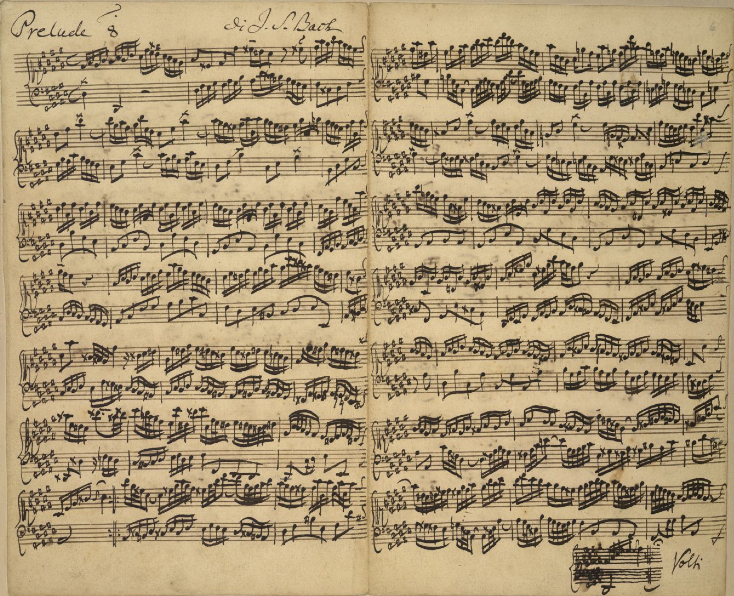 Prelude 8 di J. S. Bach
Volti